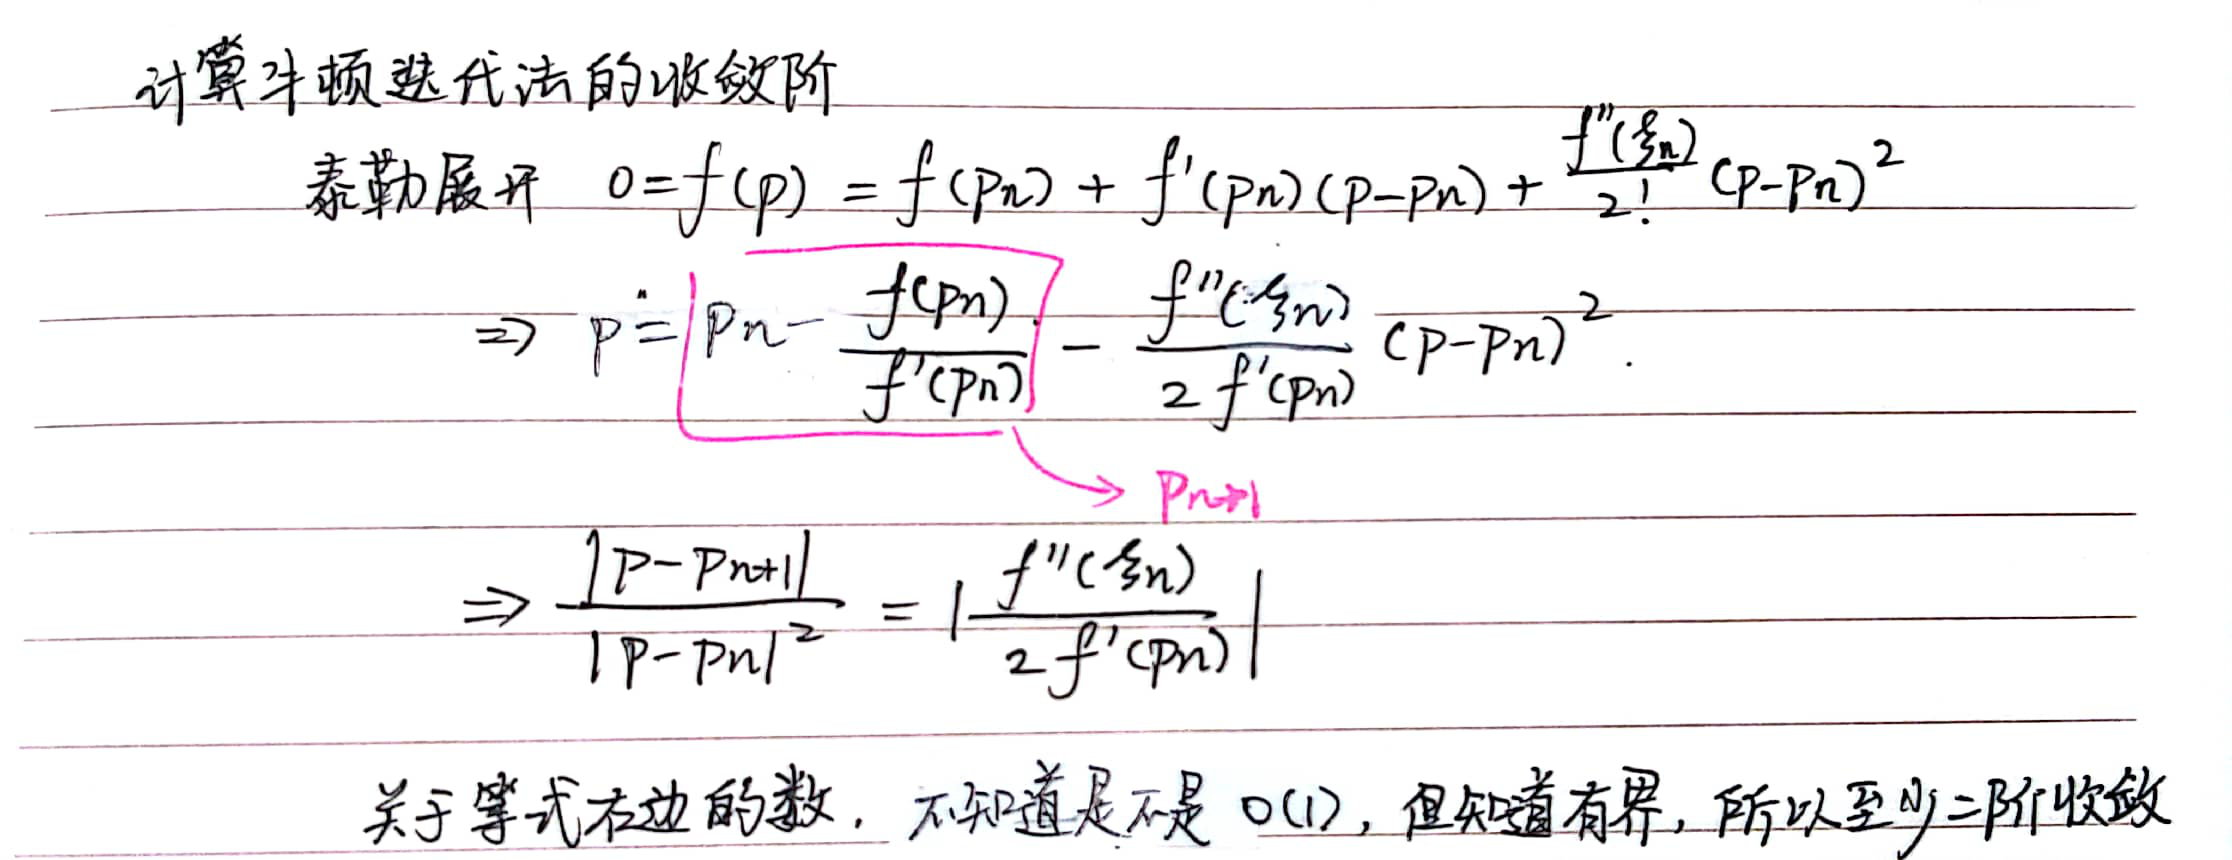 计算牛顿迭代法的收敛阶
泰勒展开 0=f(p) = f(pn) + f'(pn)(p-pn) + f''(ξn)/2! (p-pn)²
⇒ p = pn - f(pn)/f'(pn) - f''(ξn)/2f'(pn) (p-pn)².
→ pn+1
⇒ |p-pn+1|/|p-pn|² = |f''(ξn)/2f'(pn)|
关于等式右边的数，不知道是不是 o(1)，但知道有界，所以至少二阶收敛